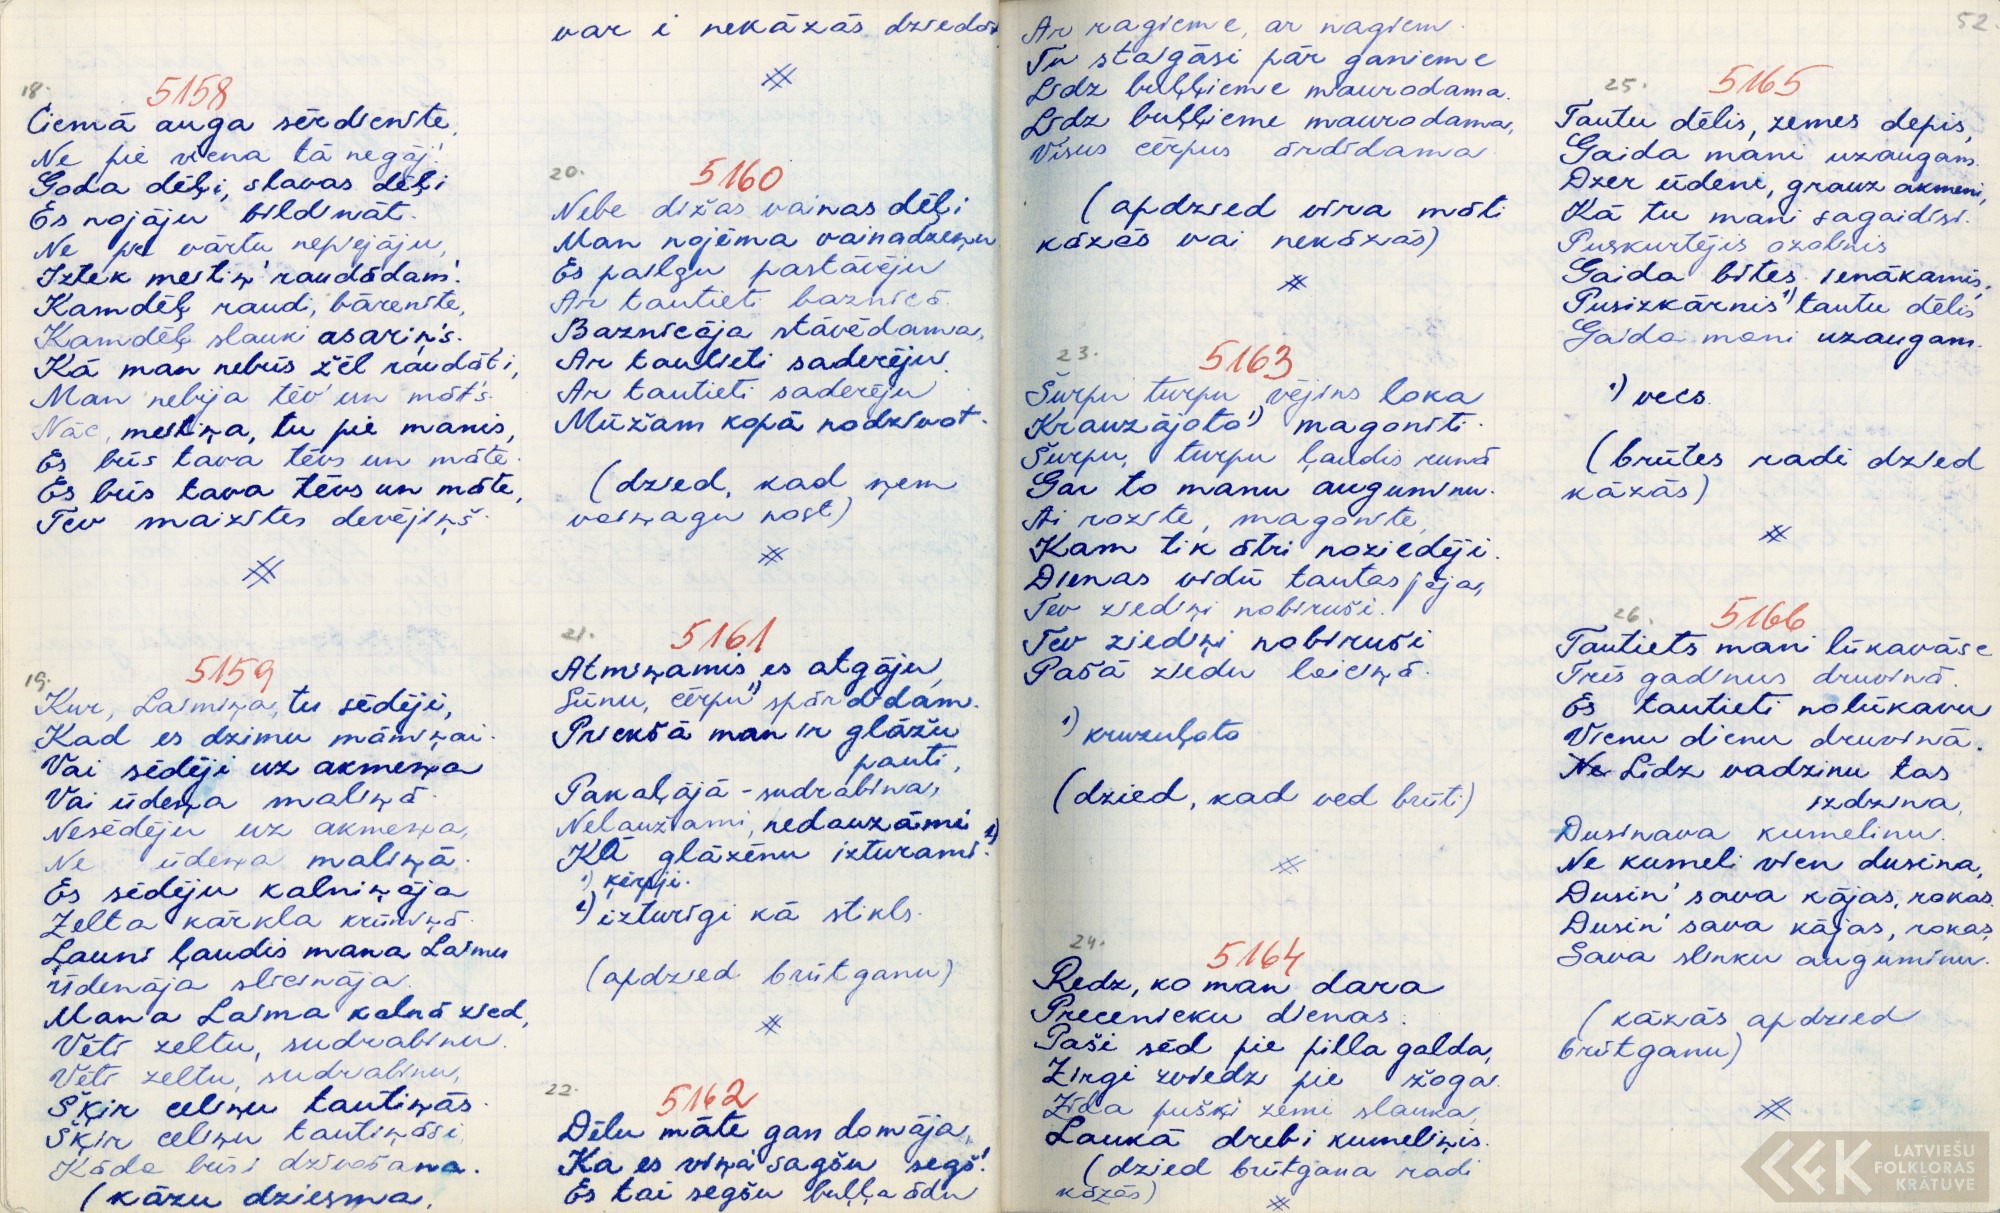 18.
5158
Ciemā auga sērdienīte,
Ne pie viena tā negāj'.
Goda dēļi, slavas dēļi
Es nojāju bildināt.
Ne pa vārtu nepiejāju,
Iztek meitiņ' raudādam'.
Kamdēļ raudi, bārenīte,
Kamdēļ slauki asariņ's.
Kā man nebūs žēl raudāti,
Man nebija tēv' un māt's.
Nāc, meitiņa, tu pie manis,
Es būs tava tēvs un māte.
Es būs tava tēvs un māte,
Tev maizītes devējiņš.
19.
5159
Kur, Laimiņa, tu sēdēji,
Kad es dzimu māmiņai.
Vai sēdēji uz akmeņa
Vai ūdeņa maliņā.
Nesēdēju uz akmeņa,
Ne ūdeņa maliņā.
Es sēdēju kalniņāja
Zelta kārkla krūmiņā.
Ļauni ļaudis mana Laimu
Ūdenāja slīcināja.
Mana Laima kalnā zied,
Vēti zeltu, sudrabinu.
Vēti zeltu, sudrabinu,
Šķir celiņu tautiņās.
Šķir celiņu tautiņāsi,
Kāda būsi dzīvošana.
(kāzu dziesma,
var i nekāzās dziedāt
20.
5160
Nebe dižas vainas dēļi
Man noņēma vainadzeņu
Es pailgu pastāvēju
Ar tautieti baznīcā.
Baznīcāja stāvēdama,
Ar tautieti saderēju.
Ar tautieti saderēju
Mūžam kopā nodzīvot.
(dzied, kad ņem
vaiņagu nost)
21.
5161
Atmiņamis es atgāju,
Sūnu, cērpu 1) spārdīdam.
Priekšā man ir glāžu
pauti,
Pakaļājā - sudrabina,
Nelaužami, nedauzāmi
Kā glāzēnu izturami. 2)
1) ķērpji.
2) izturīgi kā stikls.
(apdzied brūtganu)
22.
5162
Dēlu māte gan domāja,
Ka es viņa sagšu segš'.
Es tai segšu buļļa ādu
52.
Ar ragieme, ar nagiem.
Tu staigāsi pār ganieme
Līdz buļļieme maurodama.
Līdz buļļieme maurodama,
Visus cērpus ārdīdama.
(apdzied vīra māti
kāzās vai nekāzās)
23.
5163
Šurpu turpu vējins loka
Krauzājoto 1) magonīti.
Šurpu, turpu ļaudis runā
Gar to manu augumiņu.
Ai rozīte, magonīte,
Kam tik ātri noziedēji.
Dienas vidū tautas jāja,
Tev ziediņi nobiruši.
Tev ziediņi nobiruši
Pašā ziedu laiciņā.
1) kruzuļoto
(dzied, kad ved brūti)
24.
5164
Redz, ko man dara
Precenieku dienas.
Paši sēd pie pilla galda,
Zirgi zviedz pie žoga.
Zīda puški zemi slauka,
Laukā drebi kumeliņis.
(dzied brūtgana radi
kāzās)
25.
5165
Tautu dēlis, zemes depis,
Gaida mani uzaugam.
Dzer ūdeni, grauz akmeni,
Kā tu mani sagaidīsi.
Puskurtējis ozolnis
Gaida bites ienākamis,
Pusizkārnis 1) tautu dēlis
Gaida mani uzaugam.
1) vecs.
(brūtes radi dzied
kāzās)
26.
5166
Tautiets mani lūkavāse
Trīs gadinus druvinā.
Es tautieti nolūkavu
Vienu dienu druvinā.
Ne Līdz vadzinu tas
izdzina,
Dusinava kumelinu.
Ne kumeli vien dusina,
Dusin' sava kājas, rokas.
Dusin' sava kājas, rokas,
Sava slinku auguminu.
(kāzās apdzied
brūtganu)
LATVIEŠU
FOLKLORAS
KRĀTUVE